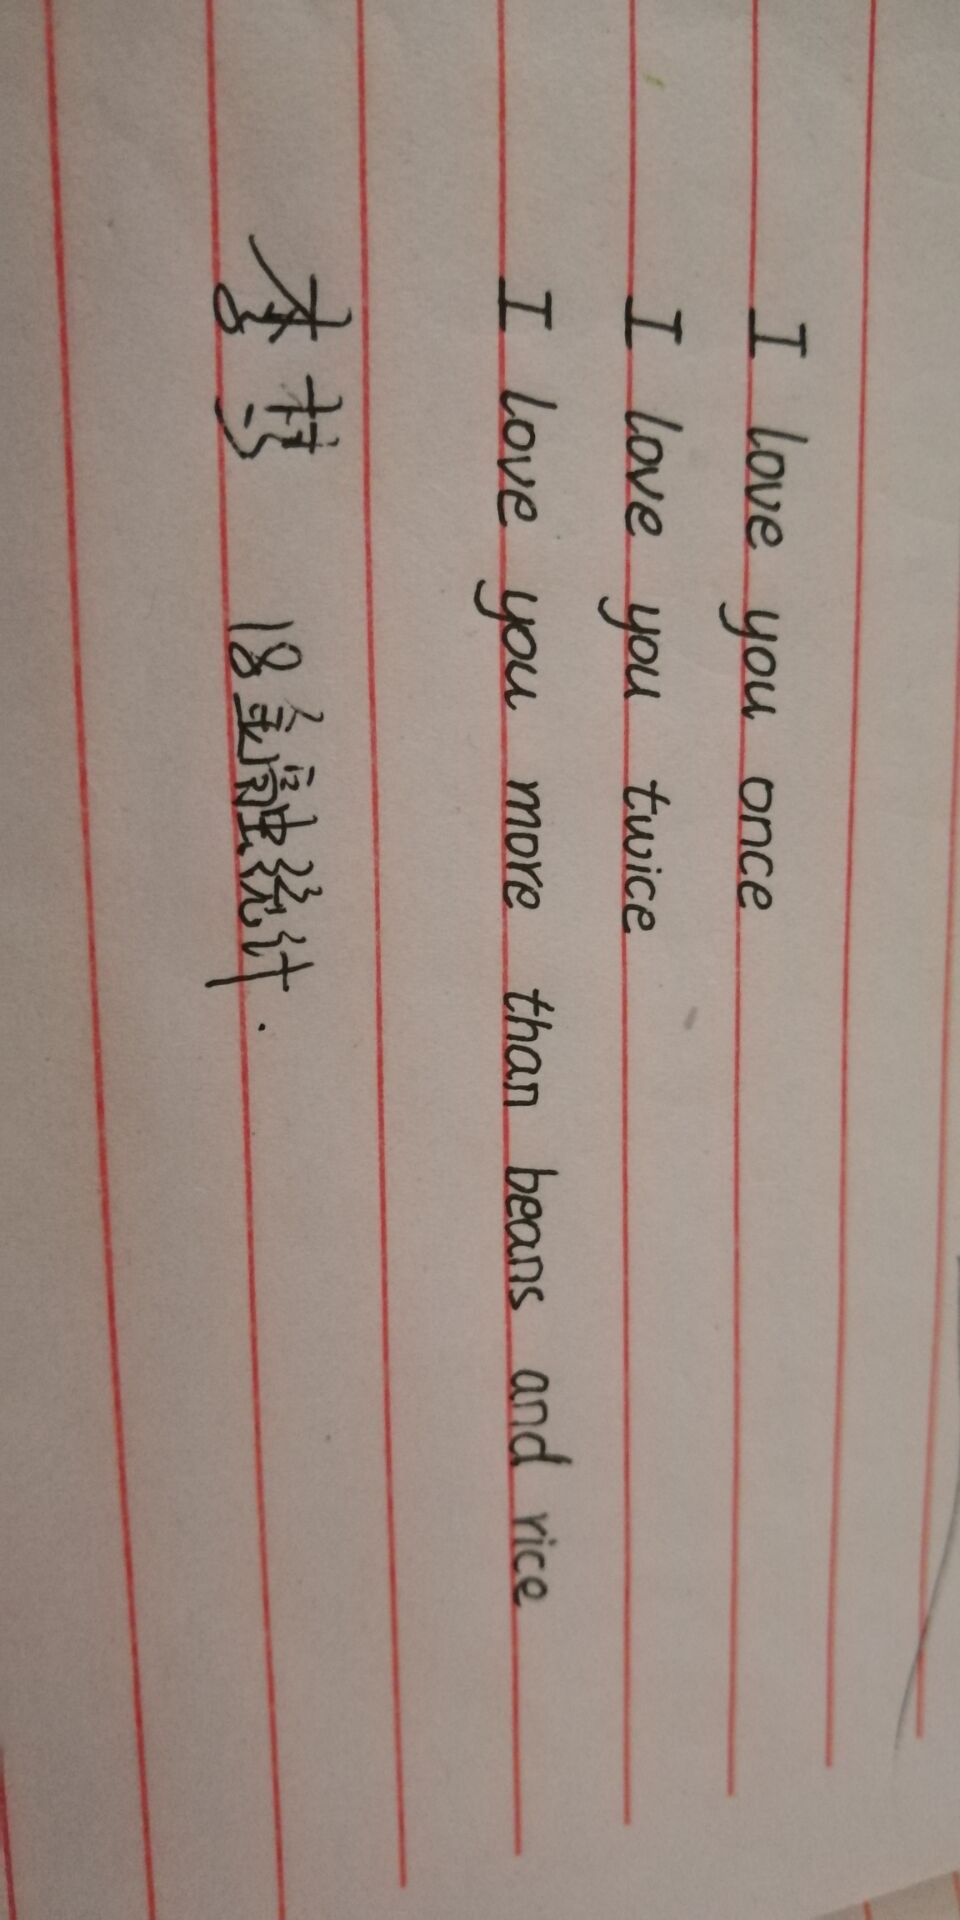 I love you once
I love you twice
I love you more than beans and rice
李梦 18金融统计.